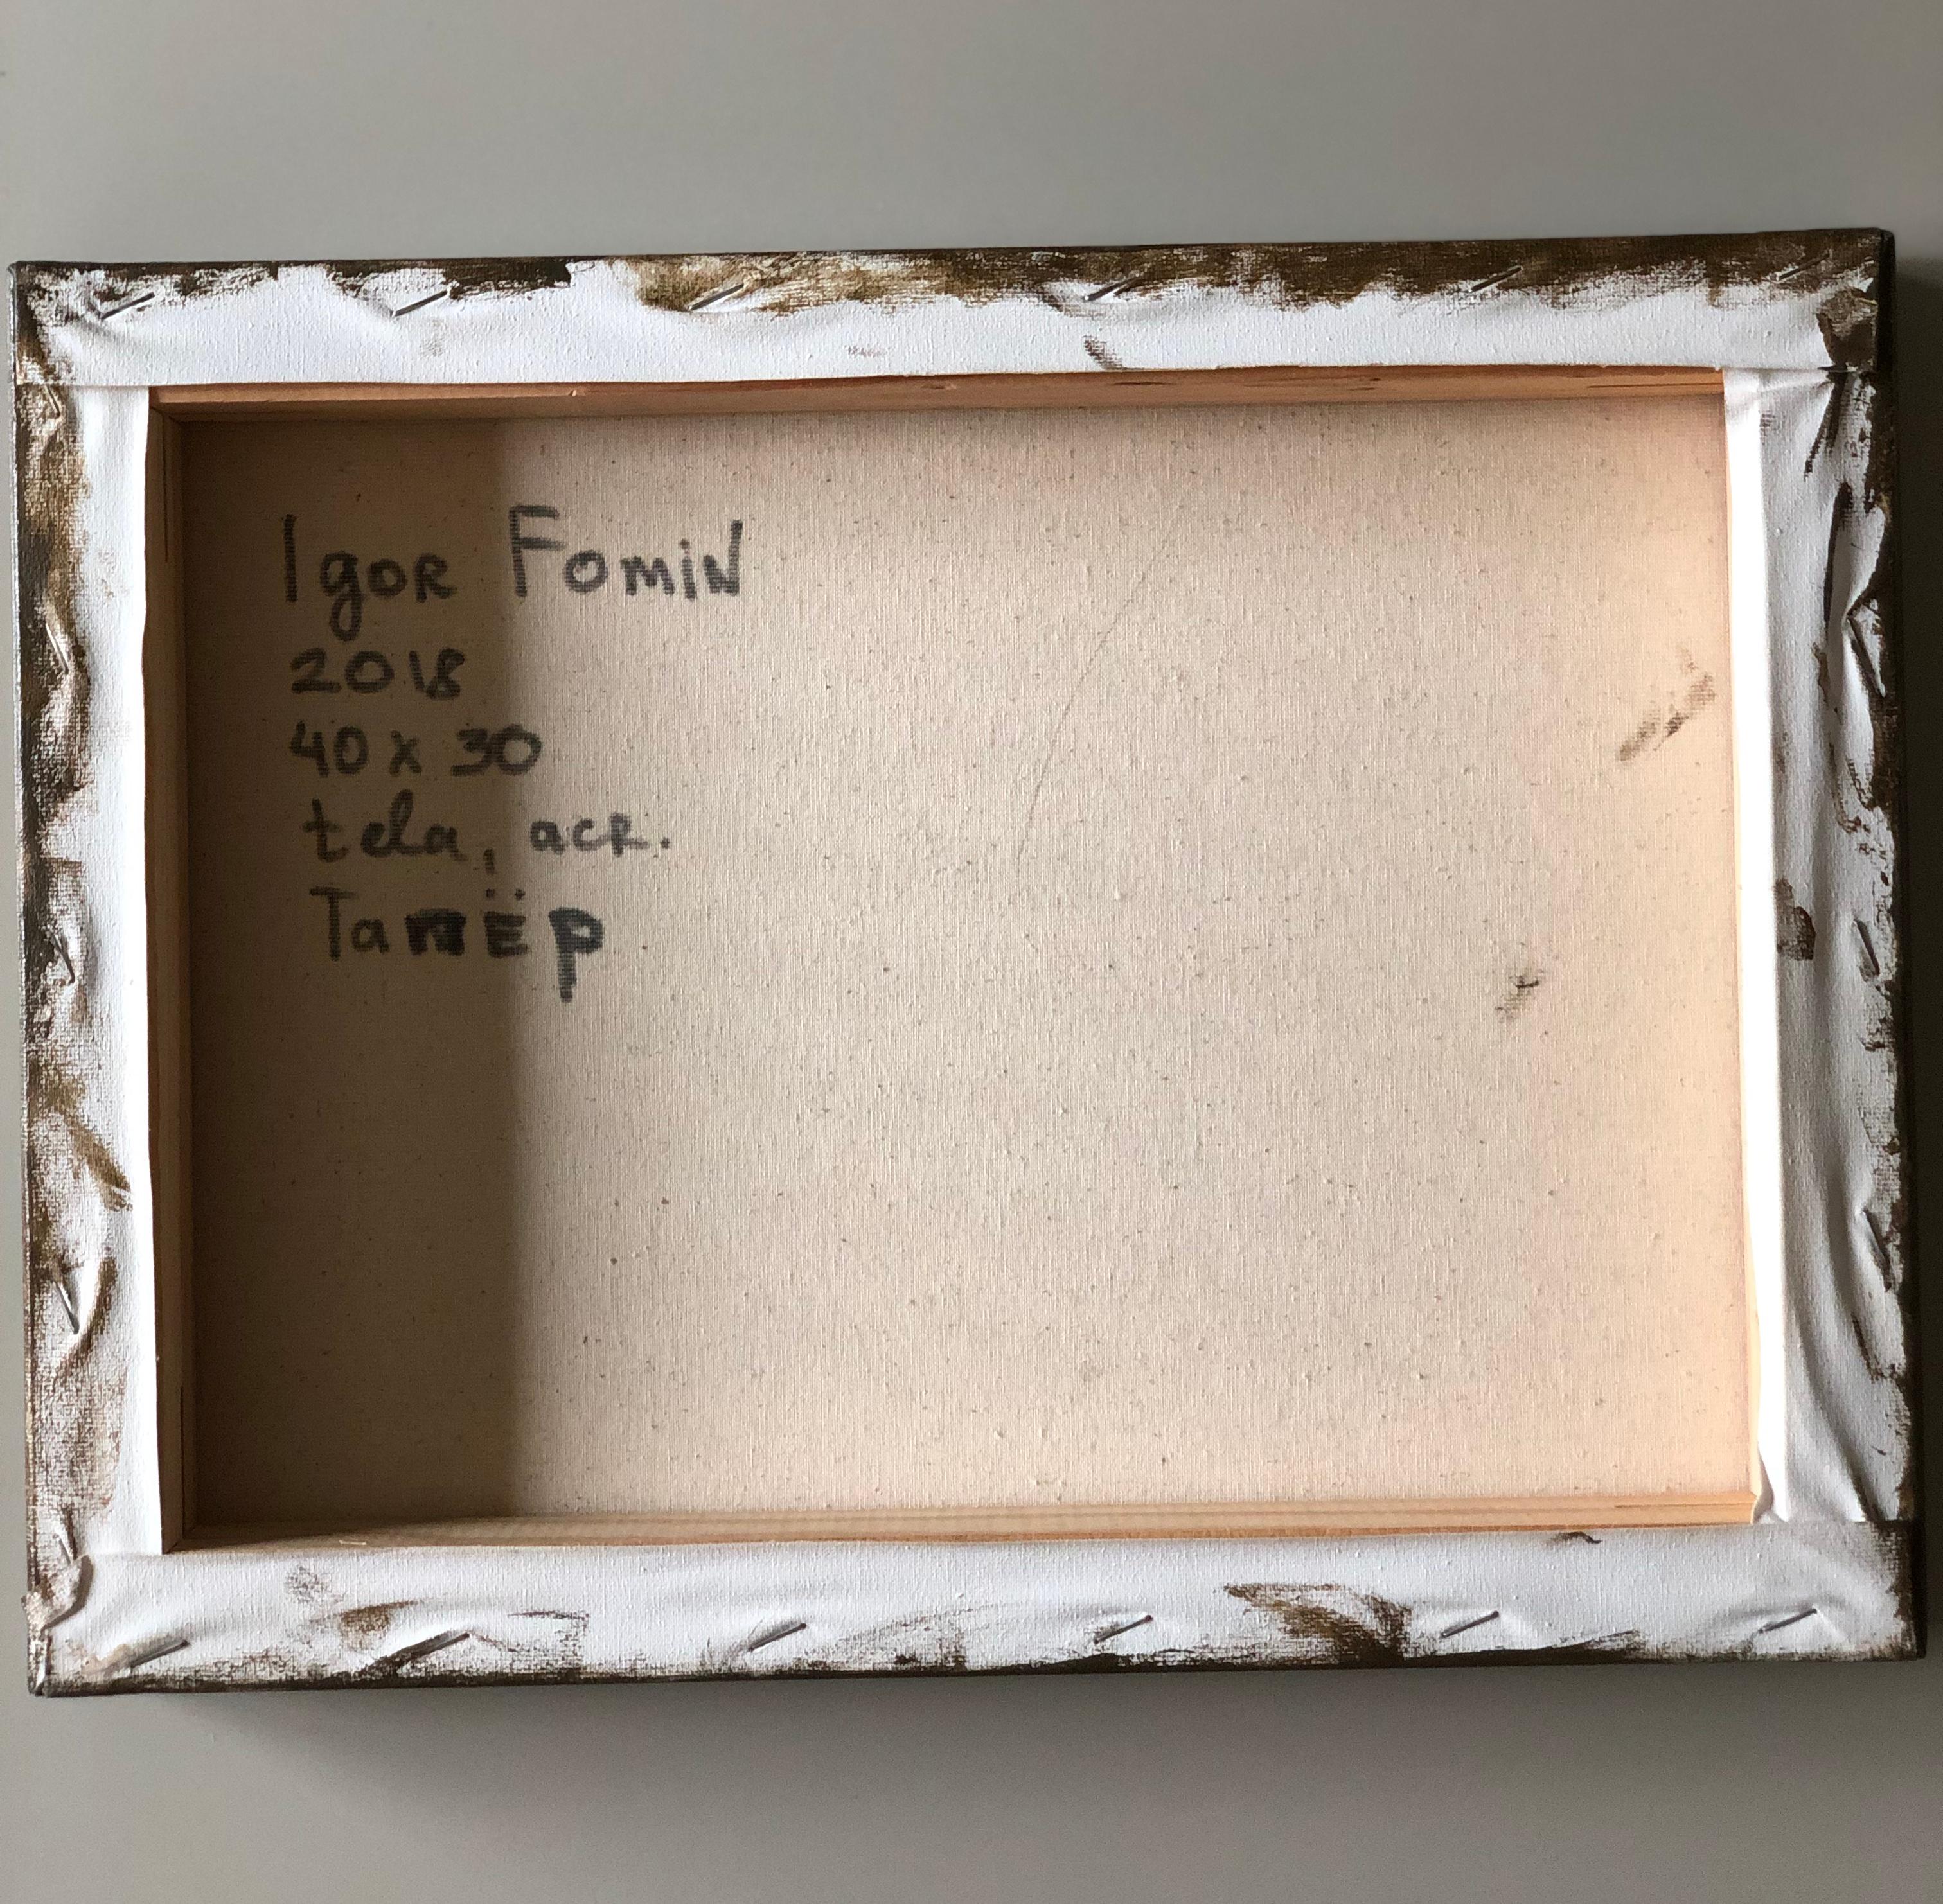 Igor Fomin
2018
40 x 30
tela, acr.
Тапёр